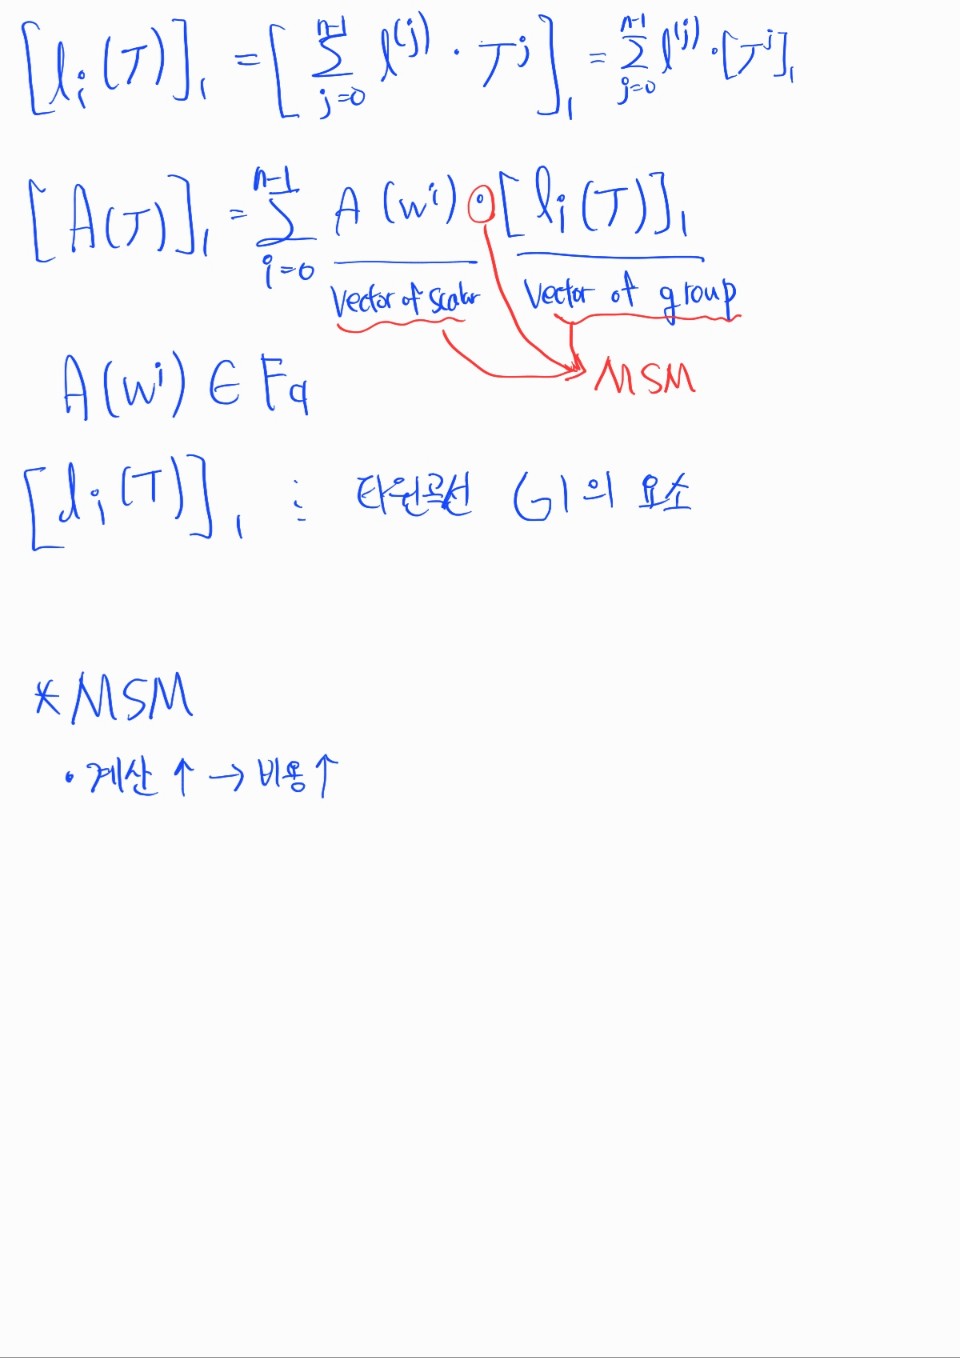 [l_i(T)]_1 = [∑_{j=0}^{n-1} l^{(j)} · T^j]_1 = ∑_{j=0}^{n-1} l^{(j)} · [T^j]_1
[A(T)]_1 = ∑_{i=0}^{n-1} A(w^i) · [l_i(T)]_1
Vector of scalar Vector of group
A(w^i) ∈ Fq MSM
[l_i(T)]_1 : 타원곡선 G1의 요소
*MSM
· 계산 ↑ → 비용 ↑